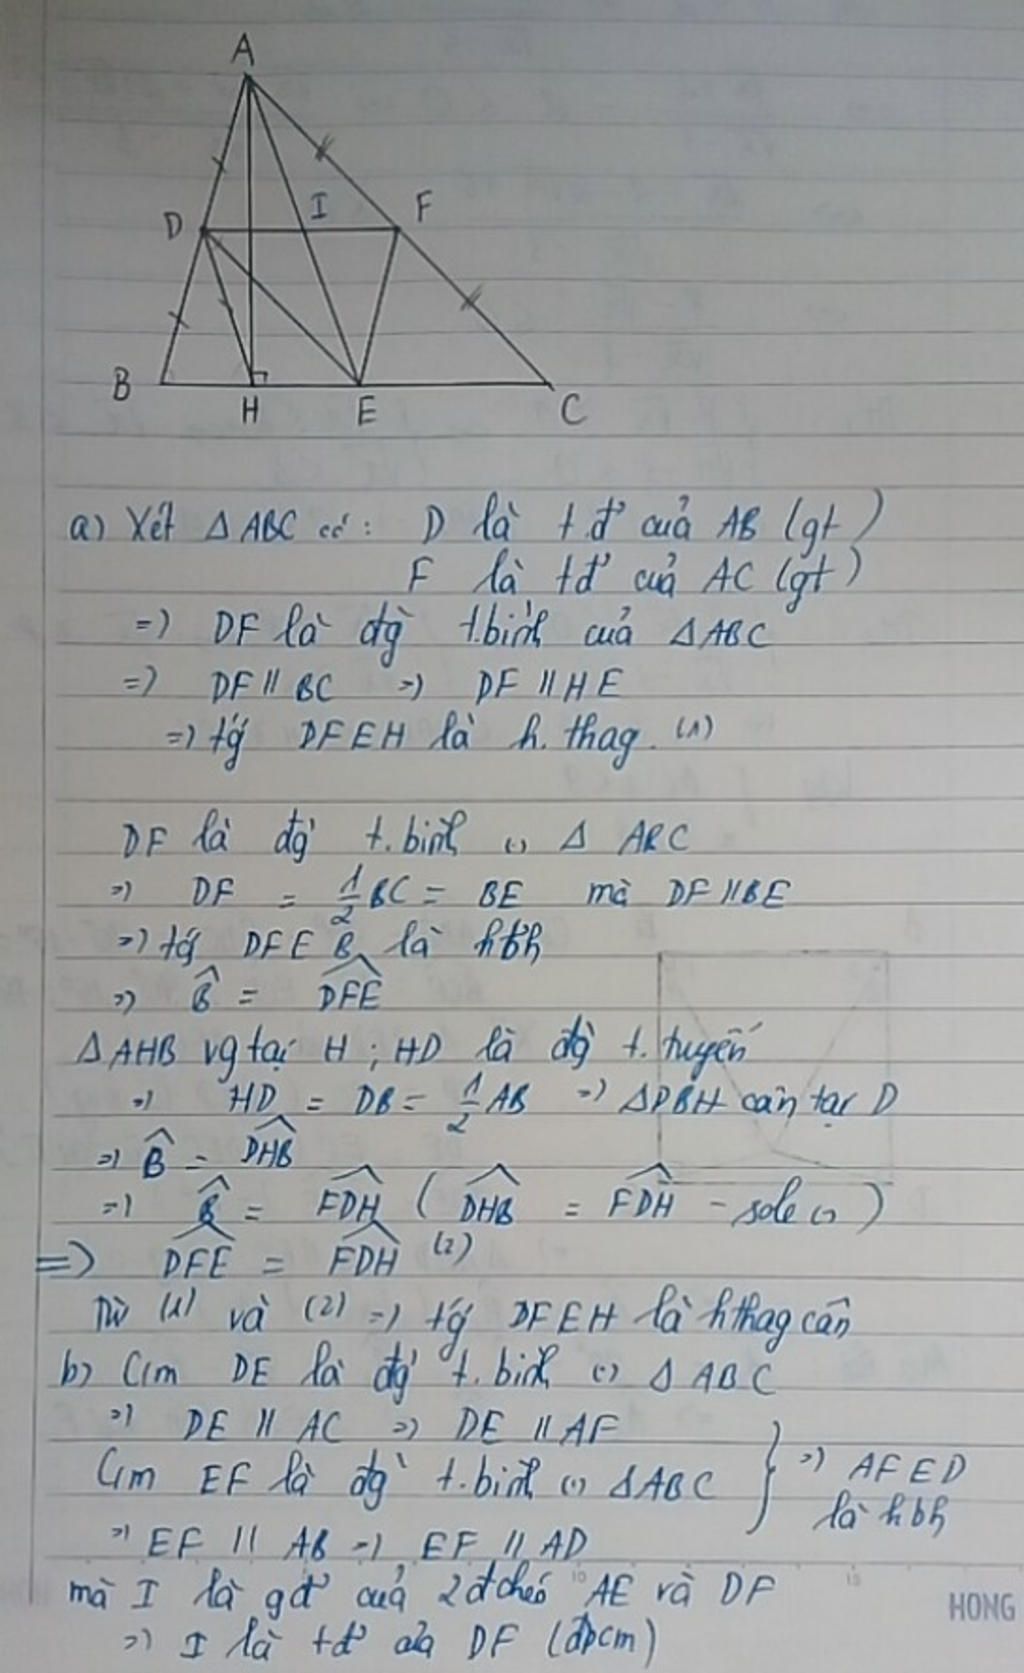 A
D
I
F
B
H
E
C
a) Xét Δ ABC có: D là t.đ' của AB (gt)
F là tđ' của AC (gt)
=) DF là đg t.bình của Δ ABC
=) DF // BC =) DF // HE
=) tg DFEH là h. thag. (1)
DF là đg t.bình (-) Δ ABC
=) DF = 1/2 BC = BE mà DF // BE
=) tg DFEB là hbh
=) B̂ = DFE
Δ AHB vg tại H ; HD là đg t. tuyến
=) HD = DB = 1/2 AB =) Δ DBH cân tại D
=) B̂ = DHB
=) B̂ = FDH ( DHB = FDH - sole (-) )
=) DFE = FDH (2)
Từ (1) và (2) =) tg DFEH là hthag cân
b) C/m DE là đg t. bình (-) Δ ABC
=) DE // AC =) DE // AF
C/m EF là đg t. bình (-) Δ ABC } =) AFED
là hbh
=) EF // AB =) EF // AD
mà I là gđ' của 2 đ chéo AE và DF
=) I là tđ' của DF (đpcm)
HONG